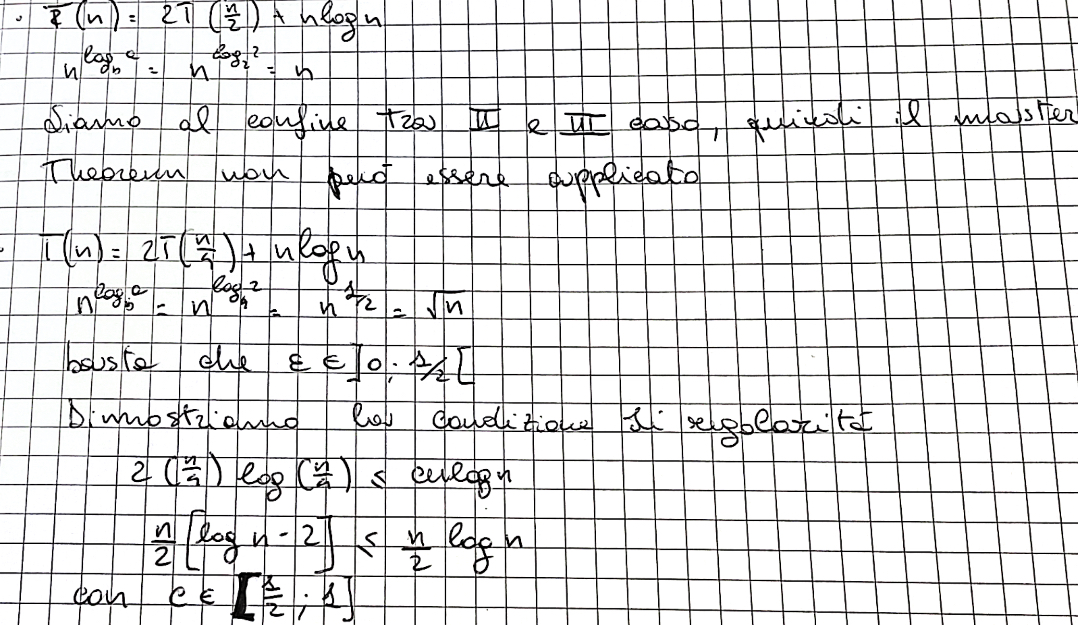 · T(n) = 2T(n/2) + n log n
n^(log_b a) = n^(log_2 2) = n
Siamo al confine tra II e III caso, quindi il master
Theorem non può essere applicato
· T(n) = 2T(n/4) + n log n
n^(log_b a) = n^(log_4 2) = n^(1/2) = √n
basta che ε ∈ ]0; 1/2[
Dimostriamo la condizione di regolarità
2 (n/4) log (n/4) ≤ c n log n
n/2 [log n - 2] ≤ n/2 log n
con c ∈ [1/2 ; 1]